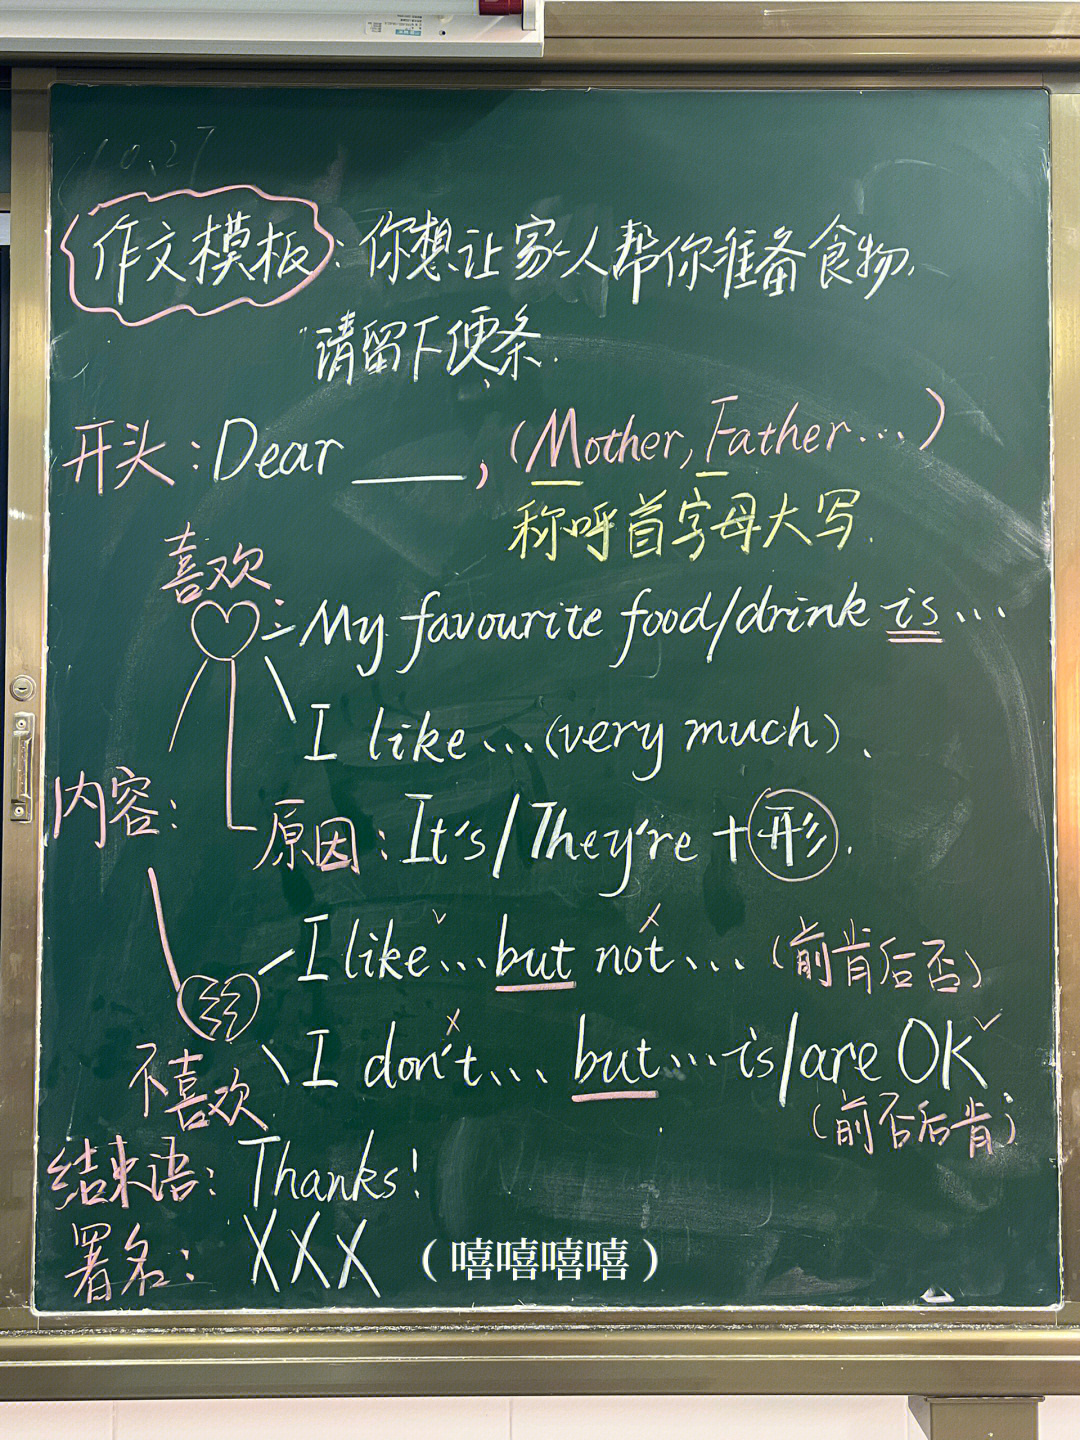 10.27
作文模板：你想让家人帮你准备食物,
请留下便条.
开头：Dear ____, (Mother, Father...)
称呼首字母大写.
喜欢
My favourite food/drink is...
I like...(very much).
内容：
原因：It's/They're + 形.
I like...but not... (前肯后否)
I don't... but...is/are OK
不喜欢
(前否后肯)
结束语：Thanks!
署名：XXX （嘻嘻嘻嘻）